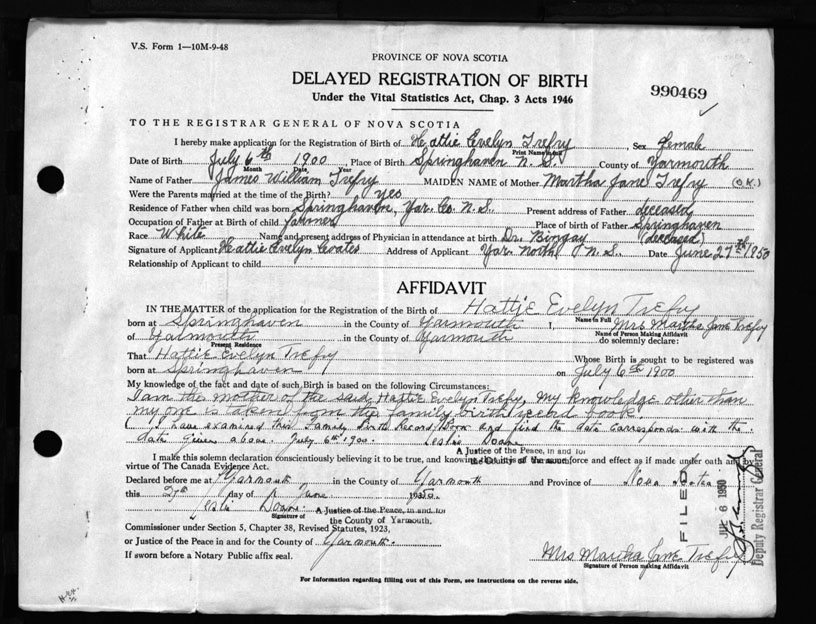 V.S. Form 1—10M-9-48
PROVINCE OF NOVA SCOTIA
DELAYED REGISTRATION OF BIRTH
990469
Under the Vital Statistics Act, Chap. 3 Acts 1946
TO THE REGISTRAR GENERAL OF NOVA SCOTIA
I hereby make application for the Registration of Birth of Hattie Evelyn Trefry, Sex Female
Print Name in full
Date of Birth July 6th 1900, Place of Birth Springhaven N.S. County of Yarmouth
Month Date Year
Name of Father James William Trefry MAIDEN NAME of Mother Martha Jane Trefry (O.K.)
Were the Parents married at the time of the Birth? yes
Residence of Father when child was born Springhaven, Yar. Co. N.S. Present address of Father deceased
Occupation of Father at Birth of child farmer Place of birth of Father Springhaven
Race White Name and present address of Physician in attendance at birth Dr. Bingay (deceased)
Signature of Applicant Hattie Evelyn Coates Address of Applicant Yar. North N.S. Date June 27th 1950
Relationship of Applicant to child
AFFIDAVIT
IN THE MATTER of the application for the Registration of Birth of Hattie Evelyn Trefry
Name in Full
born at Springhaven in the County of Yarmouth I, Mrs Martha Jane Trefry
Name of Person Making Affidavit
of Yarmouth in the County of Yarmouth do solemnly declare:
Present Residence
That Hattie Evelyn Trefry Whose Birth is sought to be registered was
born at Springhaven on July 6th 1900
My knowledge of the fact and date of such Birth is based on the following Circumstances:
I am the mother of the said Hattie Evelyn Trefry, My knowledge other than
my one is taken from the family birth record book.
( I have examined this Family Birth Record Book and find the date corresponds with the
date given above. July 6th 1900. Leslie Doane
A Justice of the Peace, in and for
the County of Yarmouth
I make this solemn declaration conscientiously believing it to be true, and knowing that it is of the same force and effect as if made under oath and by
virtue of The Canada Evidence Act.
Declared before me at Yarmouth in the County of Yarmouth and Province of Nova Scotia
this 27th day of June 1950.
Leslie Doane A Justice of the Peace, in and for
Signature of the County of Yarmouth.
Commissioner under Section 5, Chapter 38, Revised Statutes, 1923,
or Justice of the Peace in and for the County of Yarmouth.
If sworn before a Notary Public affix seal.
Mrs Martha Jane Trefry
Signature of Person making Affidavit
For Information regarding filling out of this Form, see Instructions on the reverse side.
FILED
6 1950
Deputy Registrar General